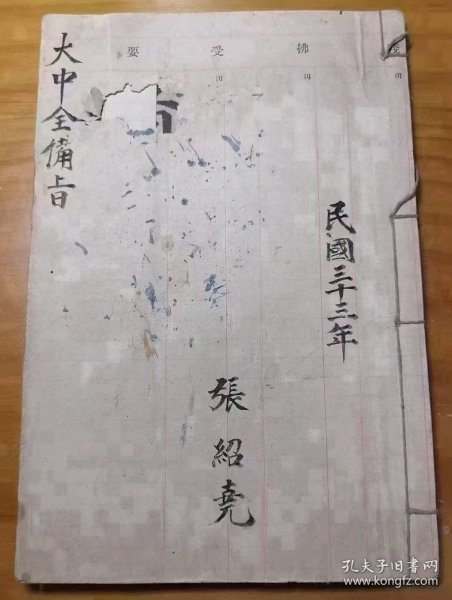 民國三十三年
張紹堯
大中全備旨
要 受 拂
孔夫子旧书网
www.kongfz.com